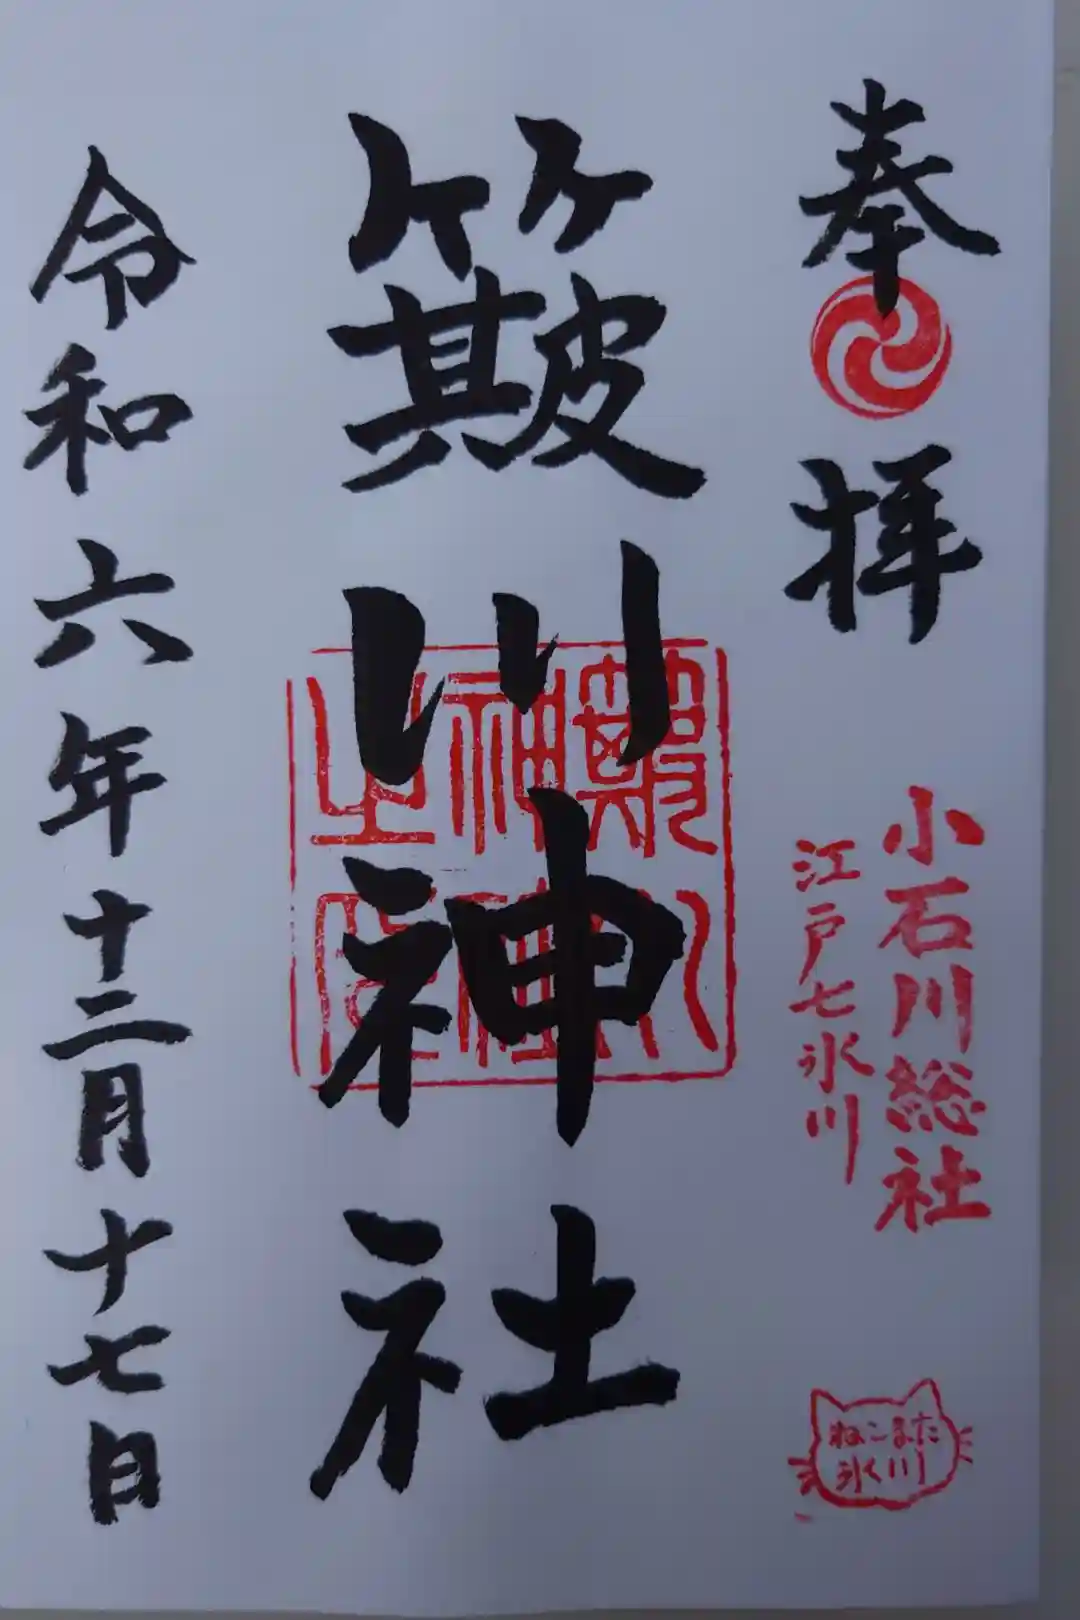 奉拝
小石川総社
江戸七氷川
ねこまた
氷川
簸川神社
簸川神社之印
令和六年十二月十七日